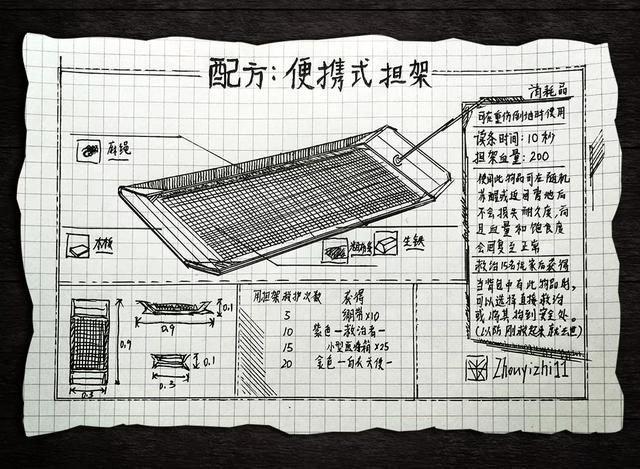 配方：便携式担架
消耗品
可在重伤倒地时使用
读条时间：10秒
担架血量：200
使用此物品可在随机
苏醒或返回营地后
不会损失耐久度，而
且血量和饱食度
会回复至正常
救治15名玩家后获得
当背包中有此物品时，
可以选择直接救治
或将其拖到安全处。
（以防刚救起来就去世）
麻绳
木板
粗麻布
生铁
用担架救护次数 获得
5 绷带x10
10 紫色—救治者—
15 小型医疗箱x25
20 金色—白衣天使—
0.9
0.3
0.1
0.9
0.1
0.3
Zhouyizhi11